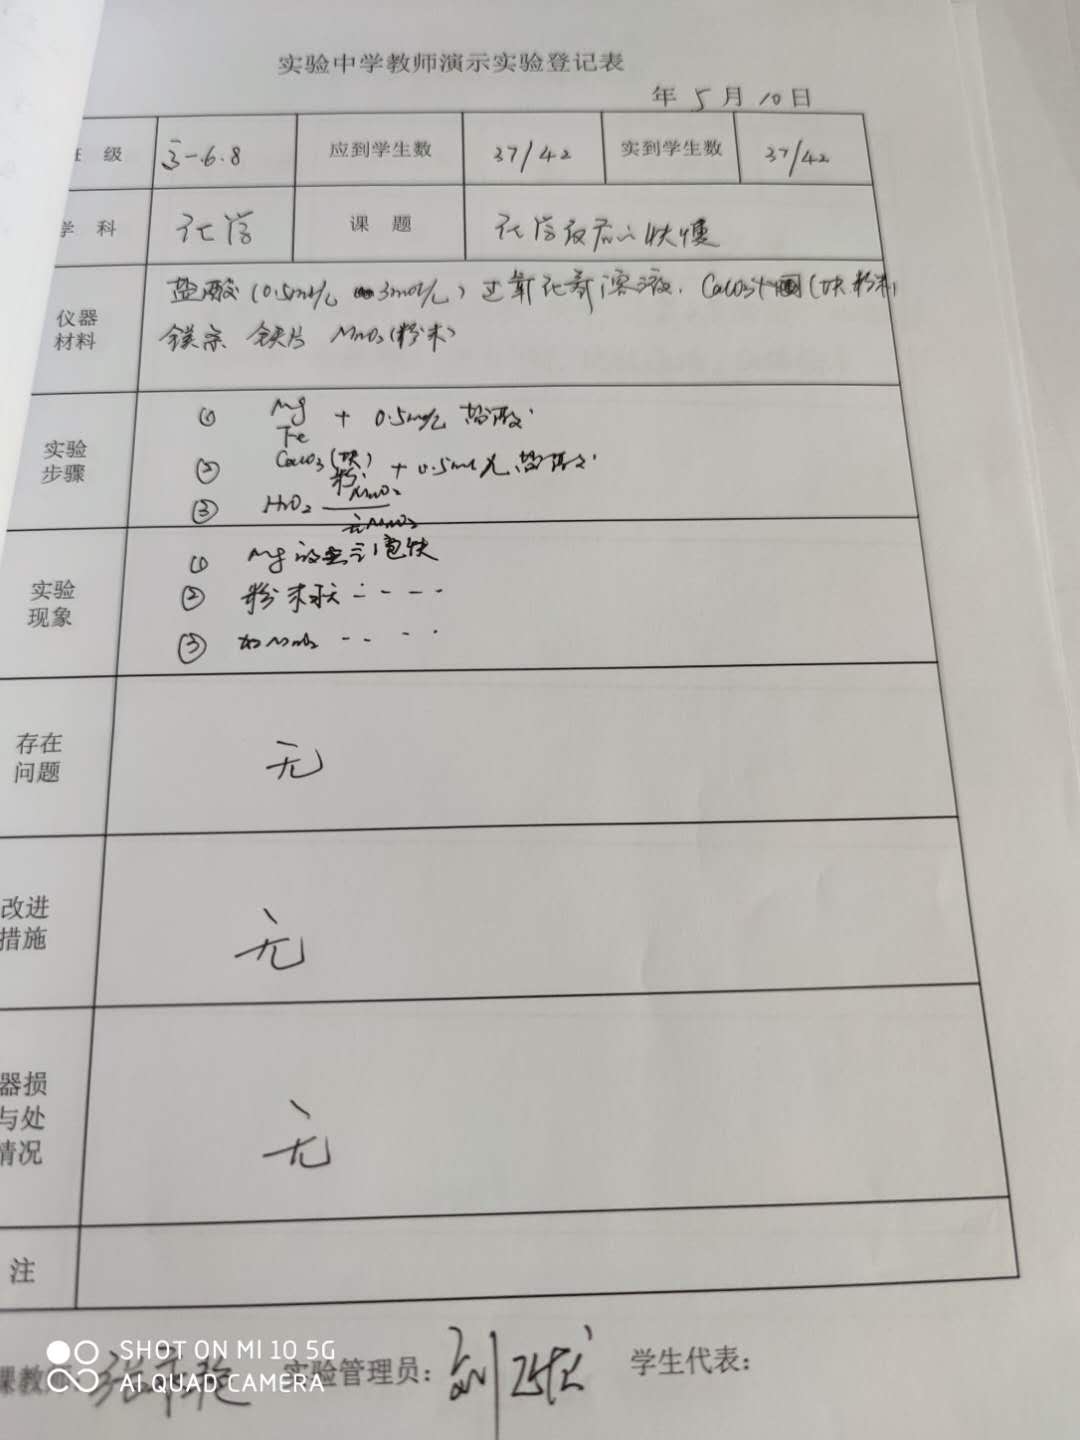 实验中学教师演示实验登记表
年 5 月 10 日
班 级 高一.6.8 应到学生数 37/42 实到学生数 37/42
学 科 化学 课 题 化学反应的快慢
仪器
材料
盐酸(0.5mol/L 3mol/L) 过氧化氢溶液. CaCO3 (块.粉末)
镁条 铁片 MnO2(粉末)
实验
步骤
① Mg
Fe + 0.5mol/L 盐酸
② CaCO3 (块)
粉 + 0.5mol/L 盐酸
③ H2O2 MnO2
无MnO2
实验
现象
① Mg 快
② 粉末状 - - - -
③ 加MnO2 - - - -
存在
问题
无
改进
措施
无
器损
与处
情况
无
注
课教师 实验管理员: 学生代表:
SHOT ON MI 10 5G
AI QUAD CAMERA